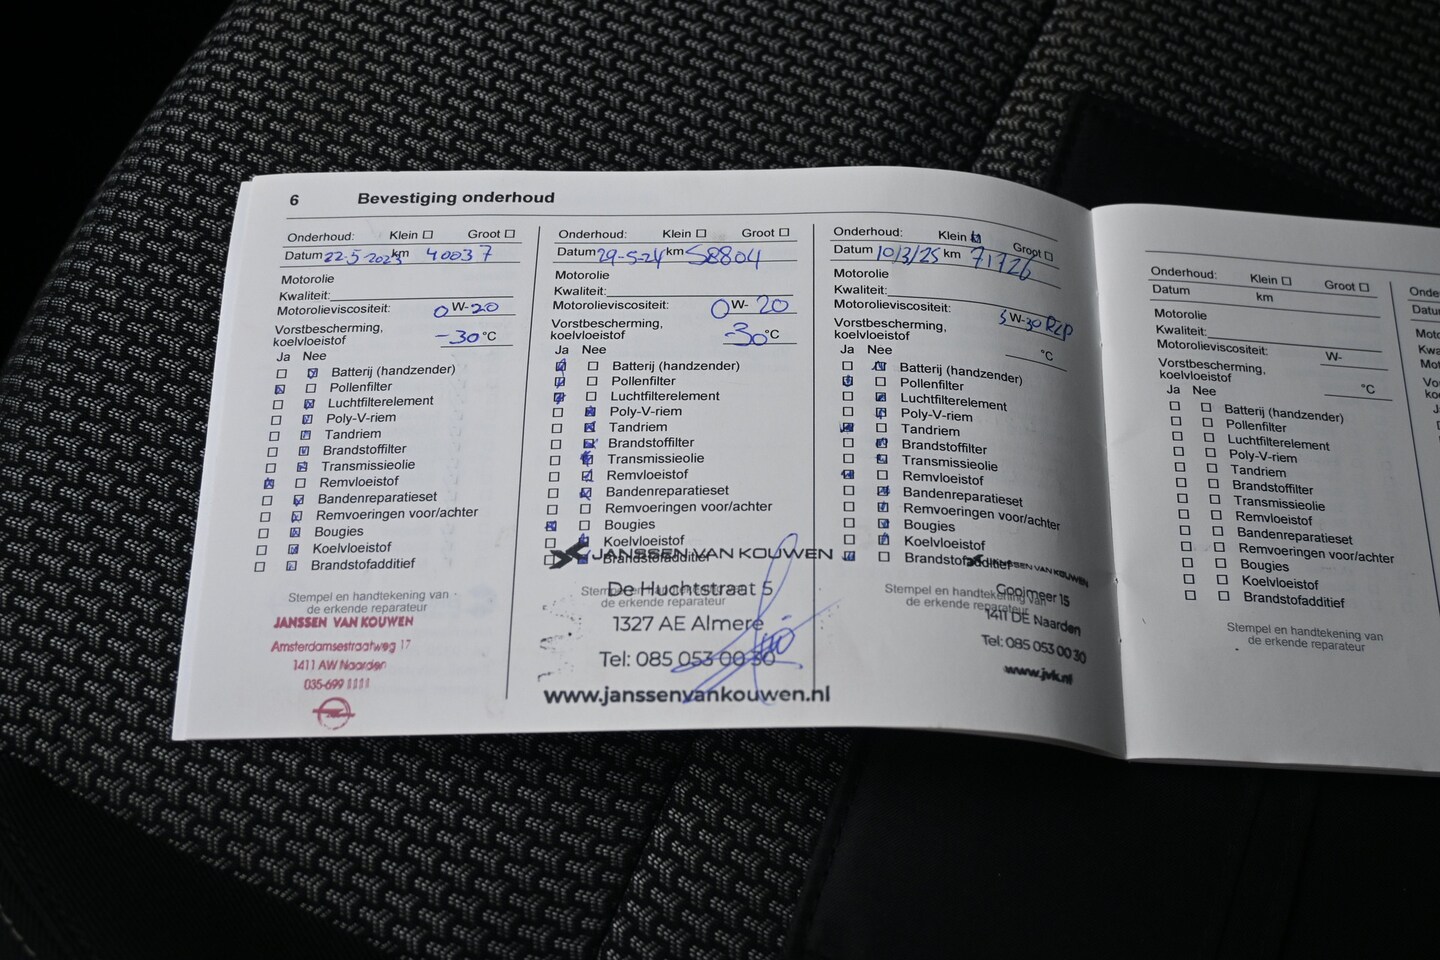 6 Bevestiging onderhoud
Onderhoud: Klein Groot
Datum 22-5-2023 km 40037
Motorolie
Kwaliteit:
Motorolieviscositeit: 0 W- 20
Vorstbescherming,
koelvloeistof -30 °C
Ja Nee
Batterij (handzender)
Pollenfilter
Luchtfilterelement
Poly-V-riem
Tandriem
Brandstoffilter
Transmissieolie
Remvloeistof
Bandenreparatieset
Remvoeringen voor/achter
Bougies
Koelvloeistof
Brandstofadditief
Stempel en handtekening van
de erkende reparateur
JANSSEN VAN KOUWEN
Amsterdamsestraatweg 17
1411 AW Naarden
035-699 1111
Onderhoud: Klein Groot
Datum 29-5-24 km 58804
Motorolie
Kwaliteit:
Motorolieviscositeit: 0 W- 20
Vorstbescherming,
koelvloeistof -30 °C
Ja Nee
Batterij (handzender)
Pollenfilter
Luchtfilterelement
Poly-V-riem
Tandriem
Brandstoffilter
Transmissieolie
Remvloeistof
Bandenreparatieset
Remvoeringen voor/achter
Bougies
Koelvloeistof
Brandstofadditief
JANSSEN VAN KOUWEN
Stempel en handtekening van
de erkende reparateur
De Huchtstraat 5
1327 AE Almere
Tel: 085 053 00 30
www.janssenvankouwen.nl
Onderhoud: Klein Groot
Datum 10/3/25 km 71726
Motorolie
Kwaliteit:
Motorolieviscositeit: 5 W- 30 RZP
Vorstbescherming,
koelvloeistof °C
Ja Nee
Batterij (handzender)
Pollenfilter
Luchtfilterelement
Poly-V-riem
Tandriem
Brandstoffilter
Transmissieolie
Remvloeistof
Bandenreparatieset
Remvoeringen voor/achter
Bougies
Koelvloeistof
Brandstofadditief
JANSSEN VAN KOUWEN
Stempel en handtekening van
de erkende reparateur
Gooimeer 15
1411 DE Naarden
Tel: 085 053 00 30
www.jvk.nl
Onderhoud: Klein Groot
Datum km
Motorolie
Kwaliteit:
Motorolieviscositeit: W-
Vorstbescherming,
koelvloeistof °C
Ja Nee
Batterij (handzender)
Pollenfilter
Luchtfilterelement
Poly-V-riem
Tandriem
Brandstoffilter
Transmissieolie
Remvloeistof
Bandenreparatieset
Remvoeringen voor/achter
Bougies
Koelvloeistof
Brandstofadditief
Stempel en handtekening van
de erkende reparateur